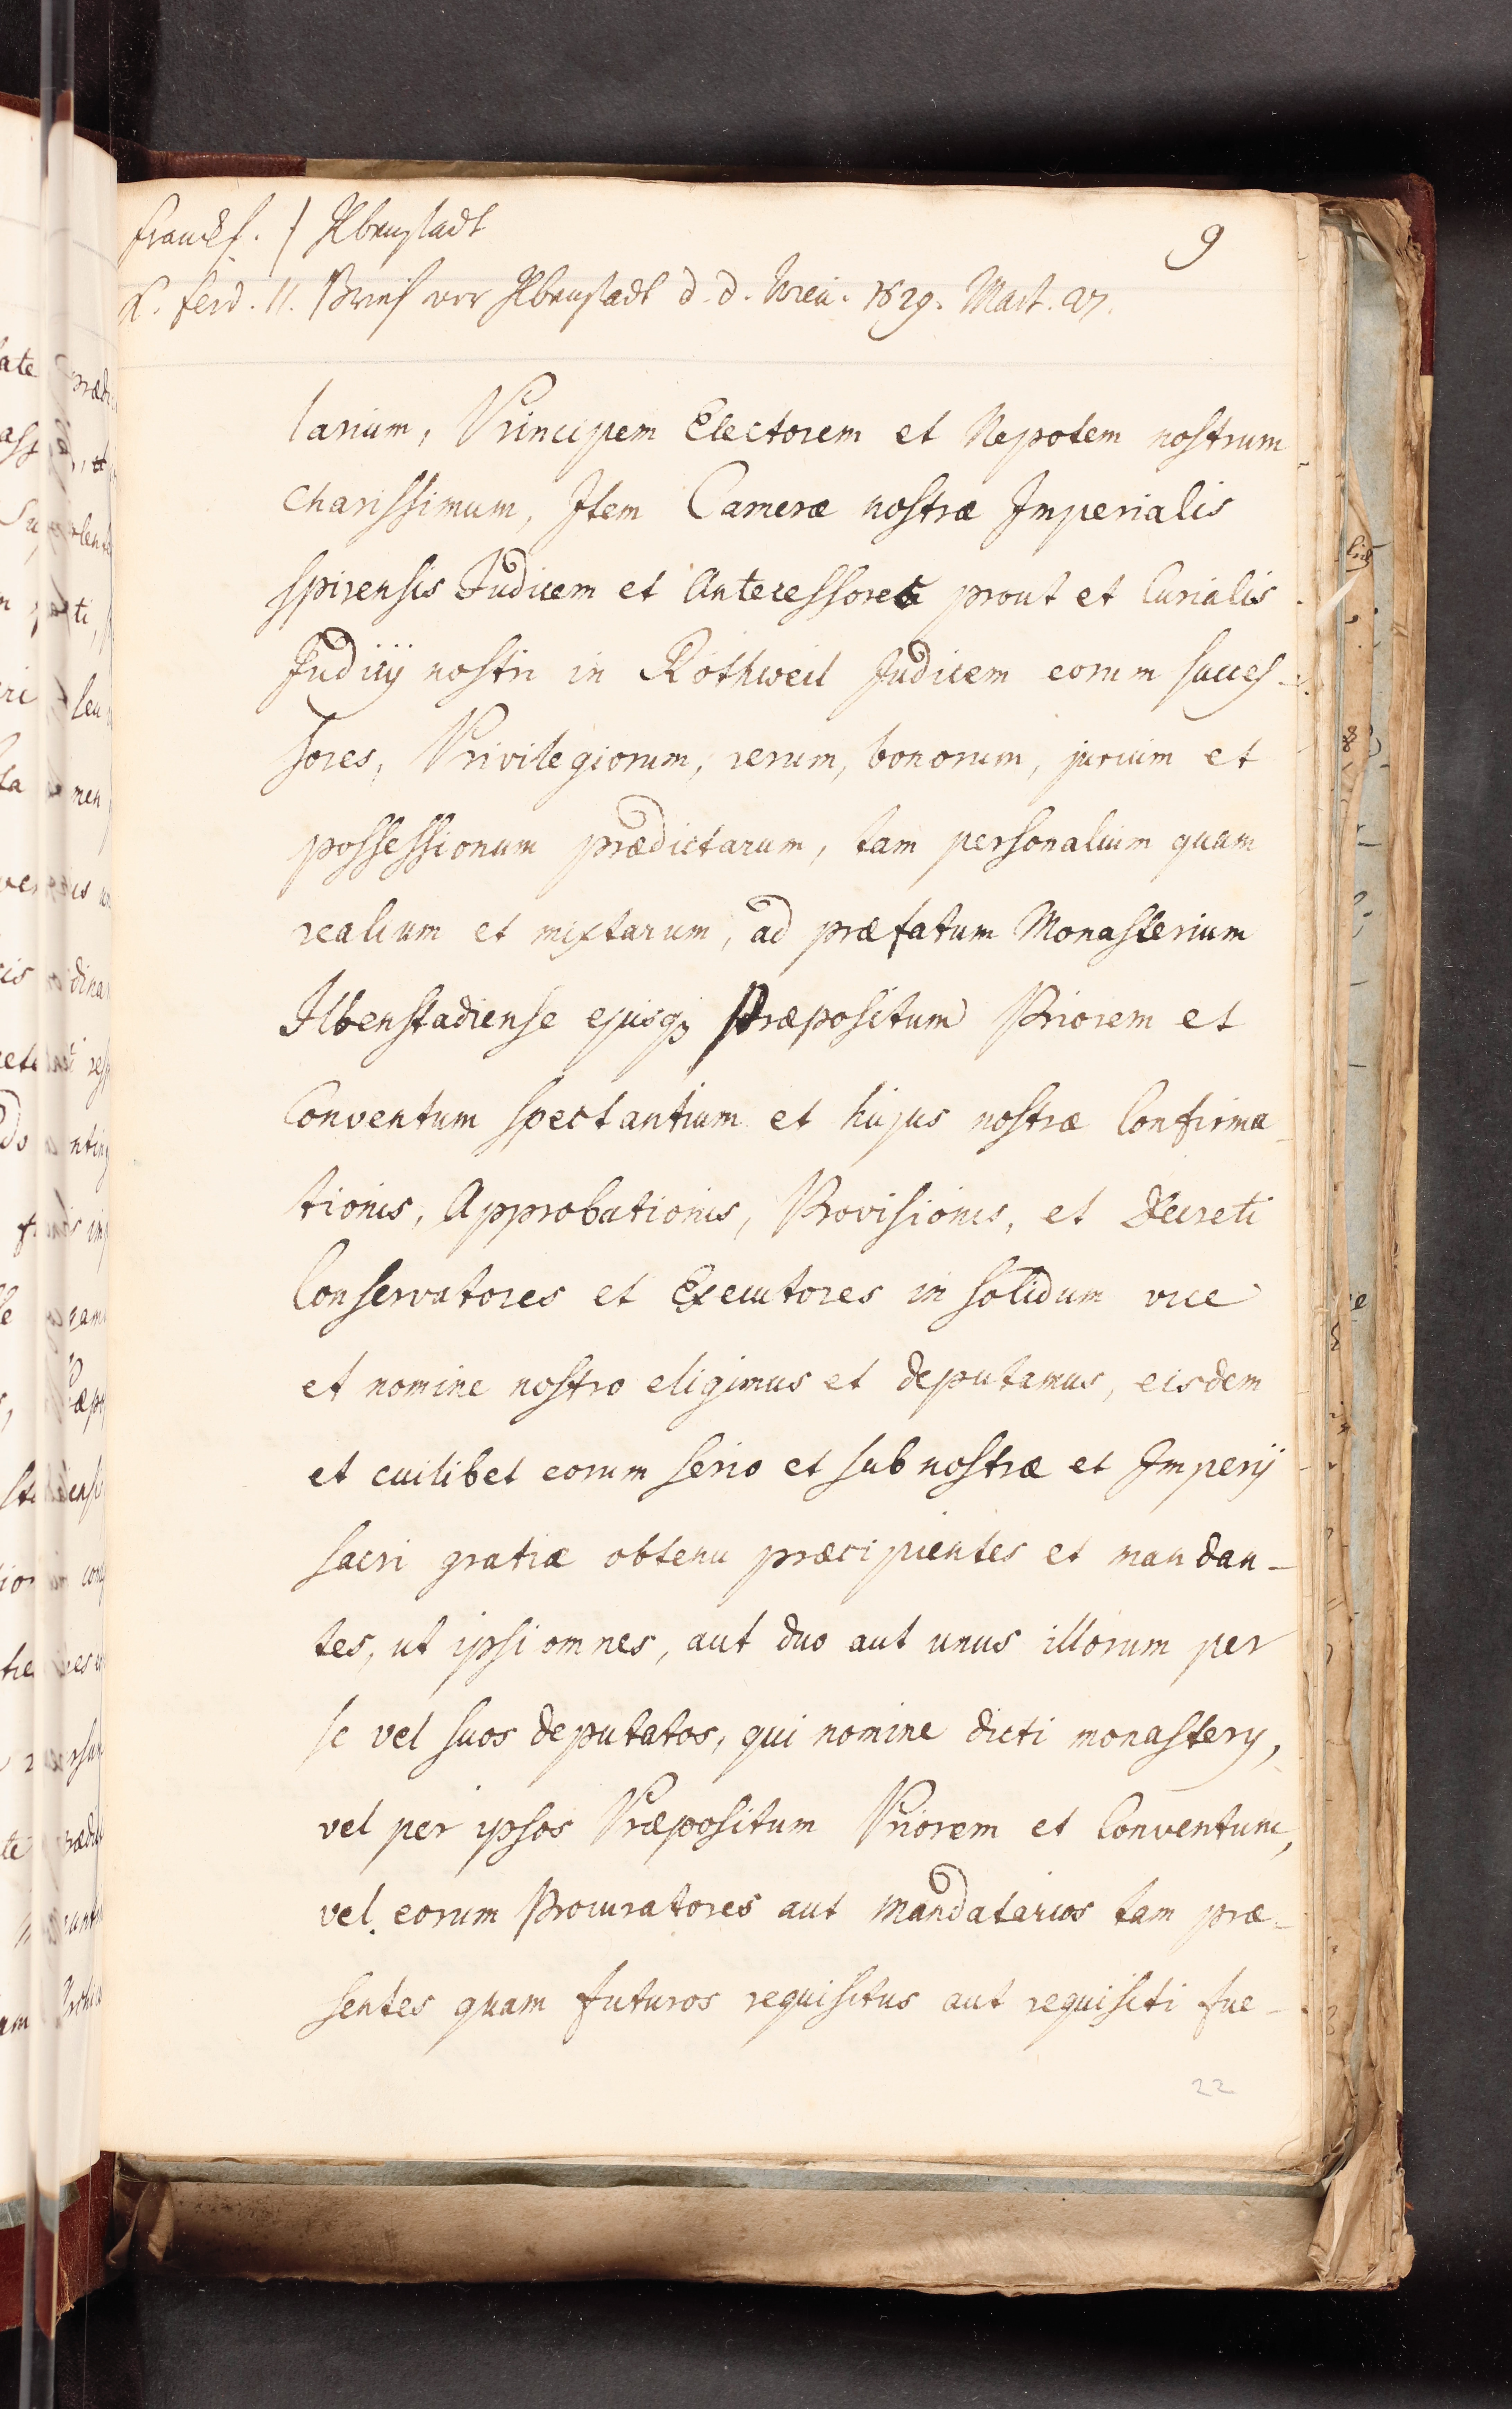 Franckf. / Ilbenstadt
9
K. Ferd. II. Brief vor Ilbenstadt d. d. Wien. 1629. Mart. 27.
larium, Principem Electorem et Nepotem nostrum
charissimum, Item Cameræ nostræ Imperialis
spirensis Judicem et Antecessores prout et Curialis
Judicij nostri in Rothweil Judicem eorum succes-
sores, Privilegiorum, rerum, bonorum, jurium et
possessionum prædictarum, tam personalium quam
realium et mixtarum, ad præfatum Monasterium
Ilbenstadiense ejusq; Præpositum Priorem et
Conventum spectantium et hujus nostræ Confirma-
tionis, Approbationis, Provisionis, et Decreti
Conservatores et Executores in solidum vice
et nomine nostro eligimus et deputamus, eisdem
et cuilibet eorum serio et sub nostræ et Imperij
sacri gratiæ obtenu præcipientes et mandan-
tes, ut ipsi omnes, aut duo aut unus illorum per
se vel suos deputatos, qui nomine dicti monastery,
vel per ipsos Præpositum Priorem et Conventum,
vel eorum Procuratores aut Mandatarios tam præ-
sentes quam futuros requisitus aut requisiti fue-
22